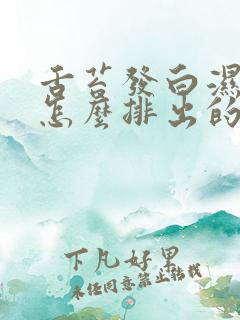 舌苔發白濕
怎麼排出的
下凡好果
未经同意禁止转载